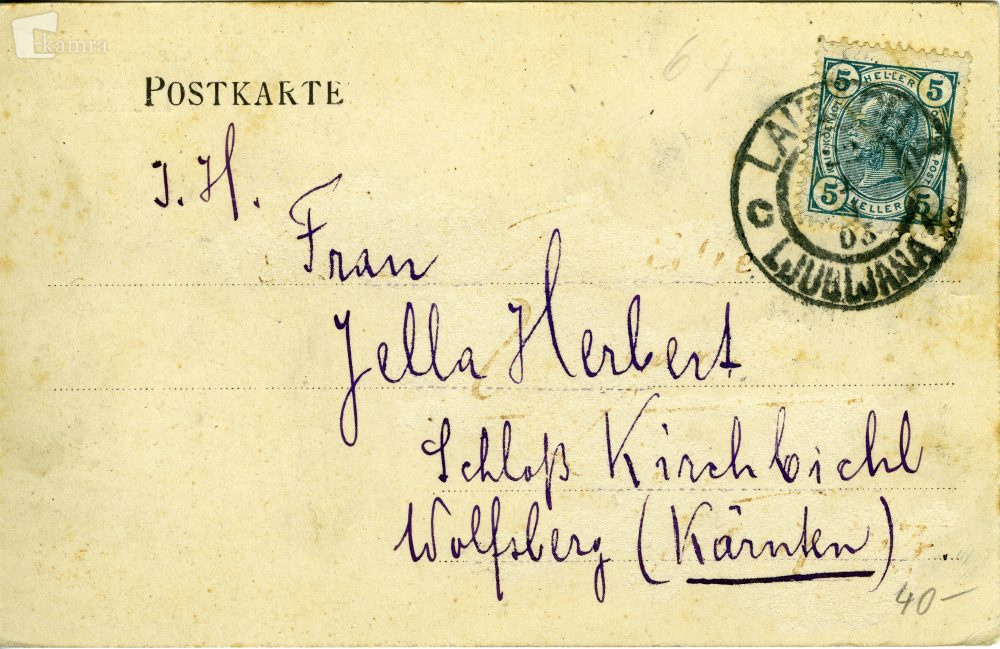 kamra
POSTKARTE
J. H.
Frau
Jella Herbert
Schloß Kirchbichl
Wolfsberg (Kärnten).
5 HELLER 5
5 HELLER 5
LJUBLJANA
C
03
40—